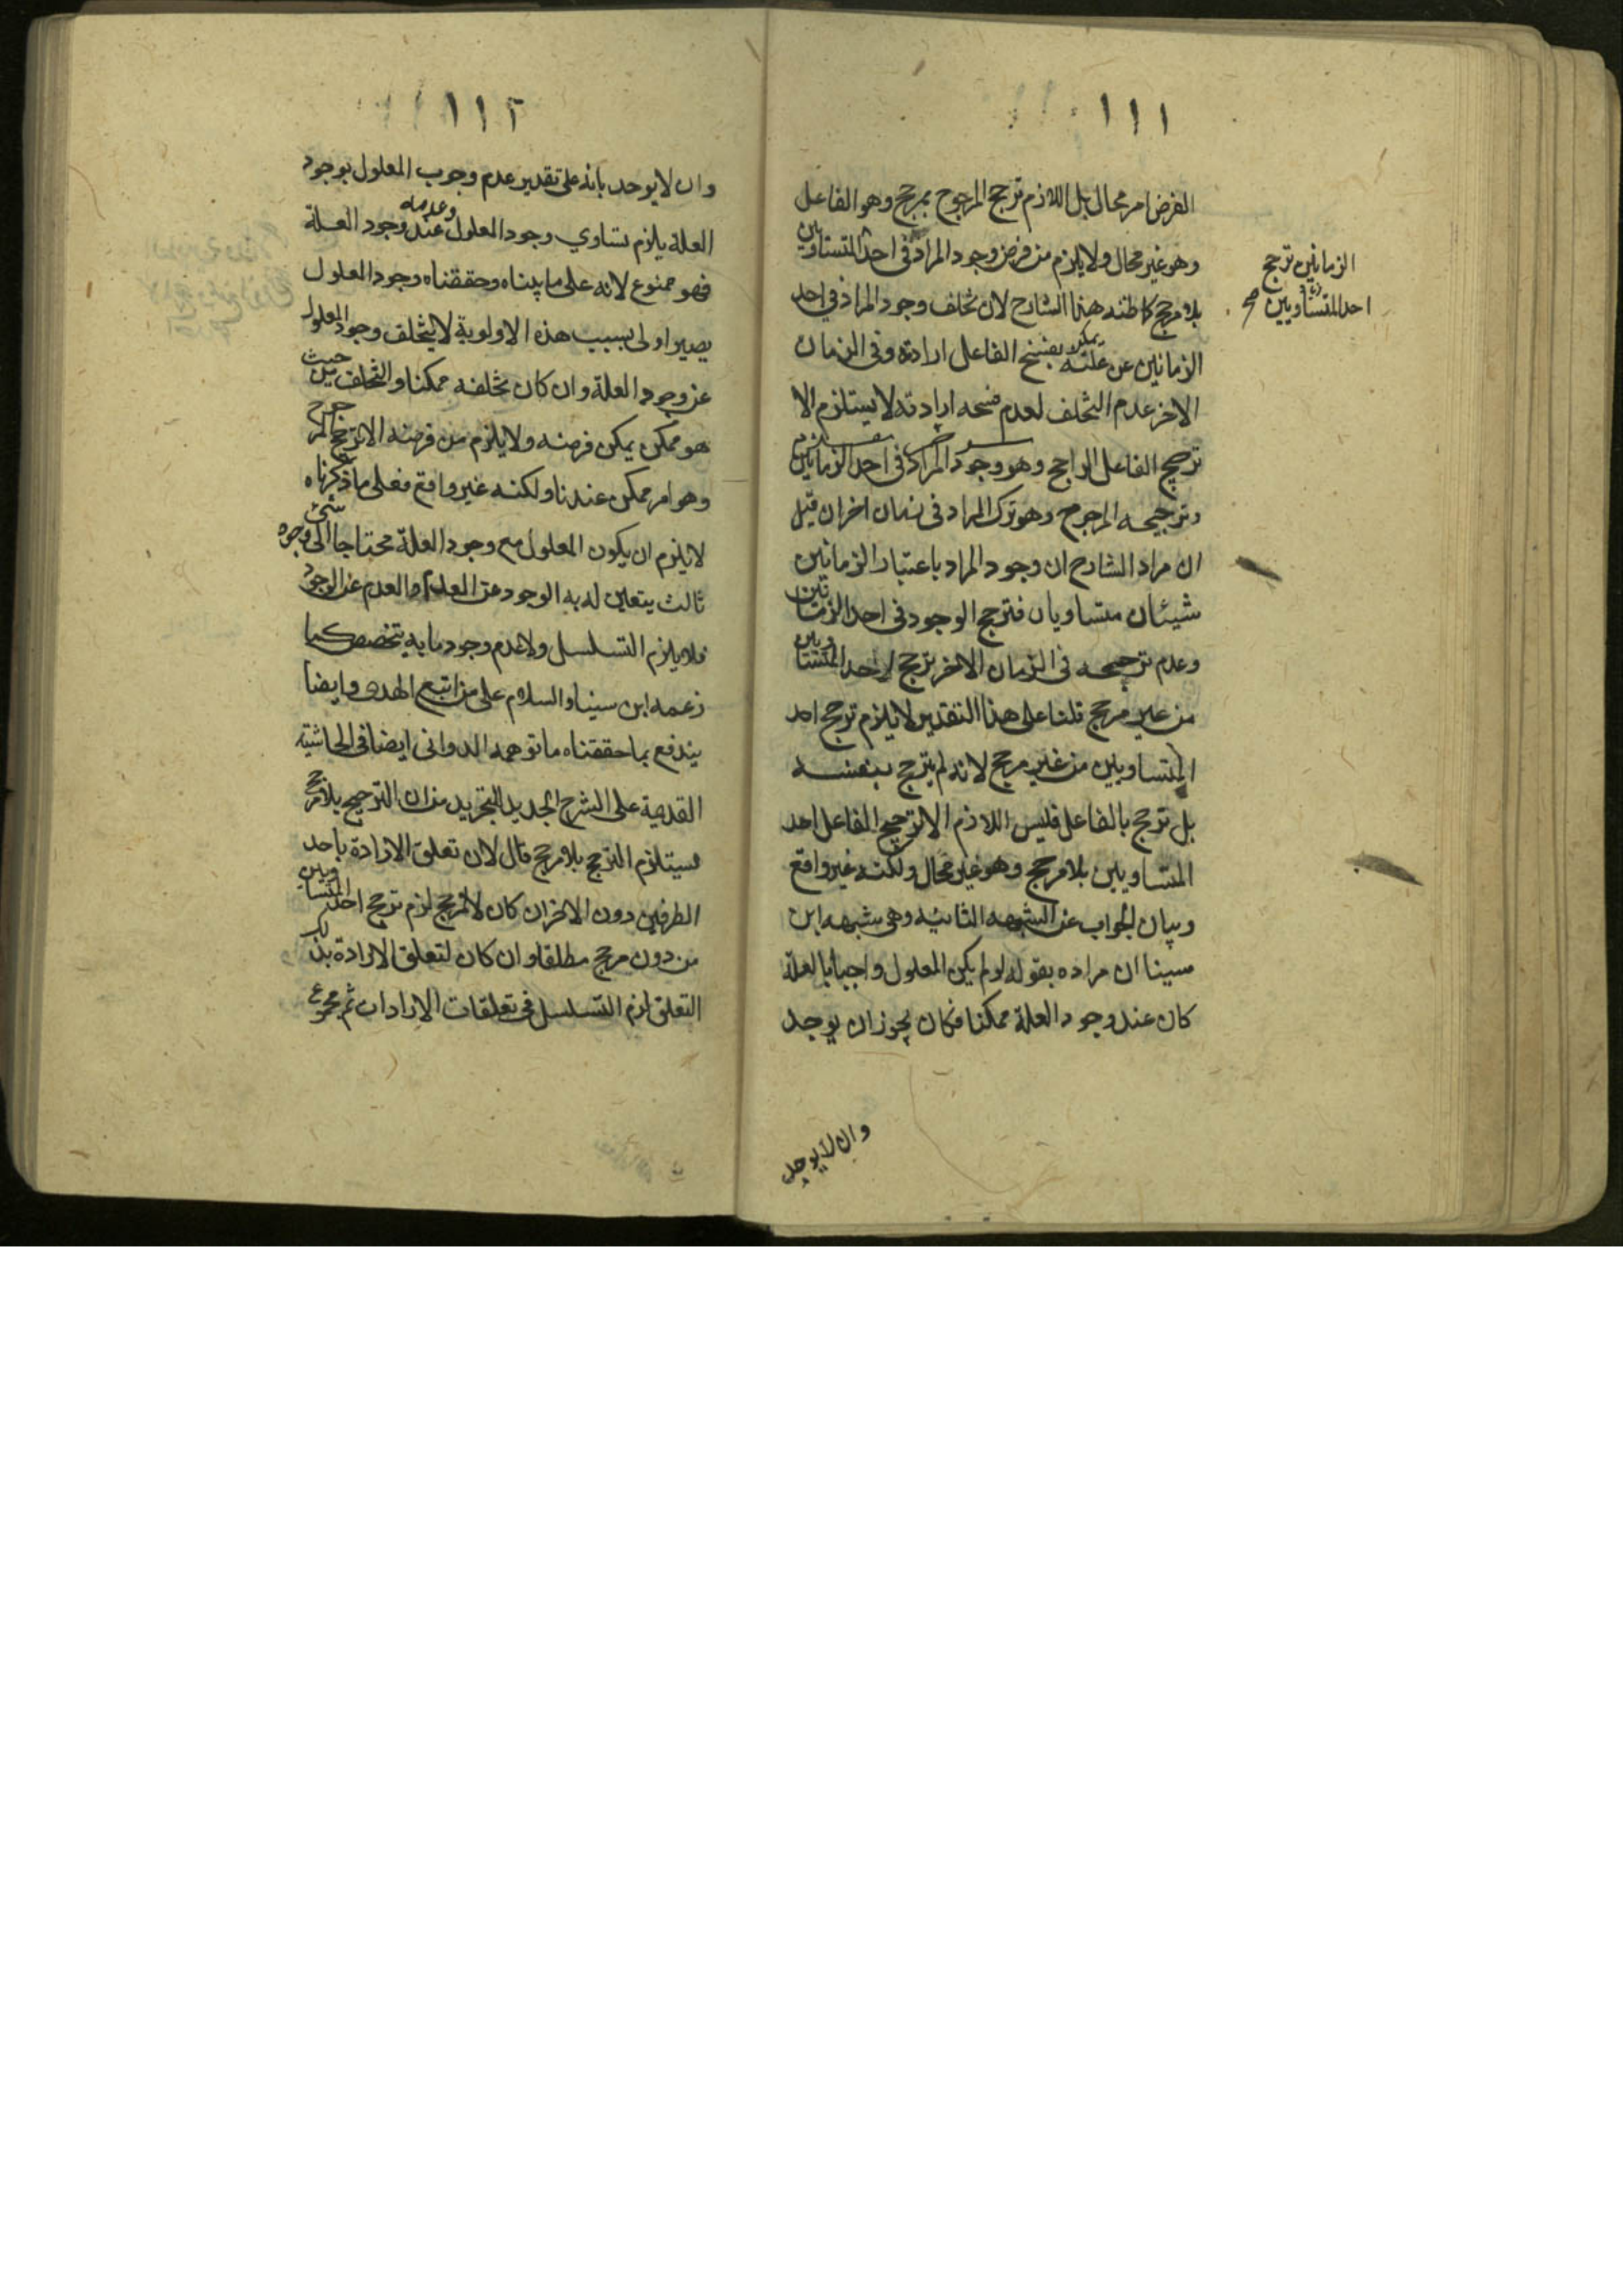 ١١١
الفرض امر محال بل اللازم ترجح المرجوح بمرجح وهو الفاعل
وهو غير محال ولا يلزم من فرض وجود المراد في احد المتساويين
بلا مرجح كما ظنه هذا الشارح لان تخلف وجود المراد في احد
الزمانين عن علته يمكن بفسخ الفاعل ارادة وفي الزمان
الاخر عدم التخلف لعدم فسخه ارادته لا يستلزم الا
ترجيح الفاعل الراجح وهو وجود المراد في احد الزمانين
وترجيحه المرجوح وهو ترك المراد في زمان اخر ان قيل
ان مراد الشارح ان وجود المراد باعتبار الزمانين
شيئان متساويان فترجح الوجود في احد الزمانين
وعدم ترجحه في الزمان الاخر ترجح لاحد المتساويين
من غير مرجح قلنا على هذا التقدير لا يلزم ترجح احد
المتساويين من غير مرجح لانه لم يترجح بنفسه
بل ترجح بالفاعل فليس اللازم الا ترجيح الفاعل احد
المتساويين بلا مرجح وهو غير محال ولكنه غير واقع
وبيان الجواب عن الشبهه الثانيه وهي شبهه ابن
سينا ان مراده بقوله لو لم يكن المعلول واجبا بالعلة
كان عند وجود العلة ممكنا فكان يجوز ان يوجد
وان لا يوجد
الزمانين ترجح
احد المتساويين صح
١١٢
وان لا يوجد بانه على تقدير عدم وجوب المعلول بوجود
العلة يلزم تساوي وجود المعلول وعدمه عند وجود العلة
فهو ممنوع لانه على ما بيناه وحققناه وجود المعلول
يصير اولى بسبب هذه الاولوية لا يتخلف وجود المعلول
عن وجود العلة وان كان تخلفه ممكنا والتخلف من حيث
هو ممكن يمكن فرضه ولا يلزم من فرضه الا ترجح المرجوح
وهو امر ممكن عندنا ولكنه غير واقع فعلى ما ذكرناه
لا يلزم ان يكون المعلول مع وجود العلة محتاجا الى وجود شئ
ثالث يتعين له به الوجود عن العدم او العدم عن الوجود
فلا يلزم التسلسل ولا عدم وجود ما به يتخصص كما
زعمه ابن سينا والسلام على من اتبع الهدى وايضا
يندفع بما حققناه ما توهمه الدواني ايضا في الحاشية
القديمة على الشرح الجديد للتجريد من ان الترجيح بلا مرجح
يستلزم الترجح بلا مرجح قال لان تعلق الارادة باحد
الطرفين دون الاخر ان كان لا لمرجح لزم ترجح احد المتساويين
من دون مرجح مطلقا وان كان لتعلق الارادة بذلك
التعلق لزم التسلسل في تعلقات الارادات ثم مجموع